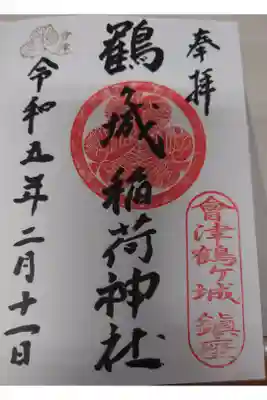 奉拝
會津鶴ヶ城 鎮座
鶴ヶ城稲荷神社
令和五年二月十一日